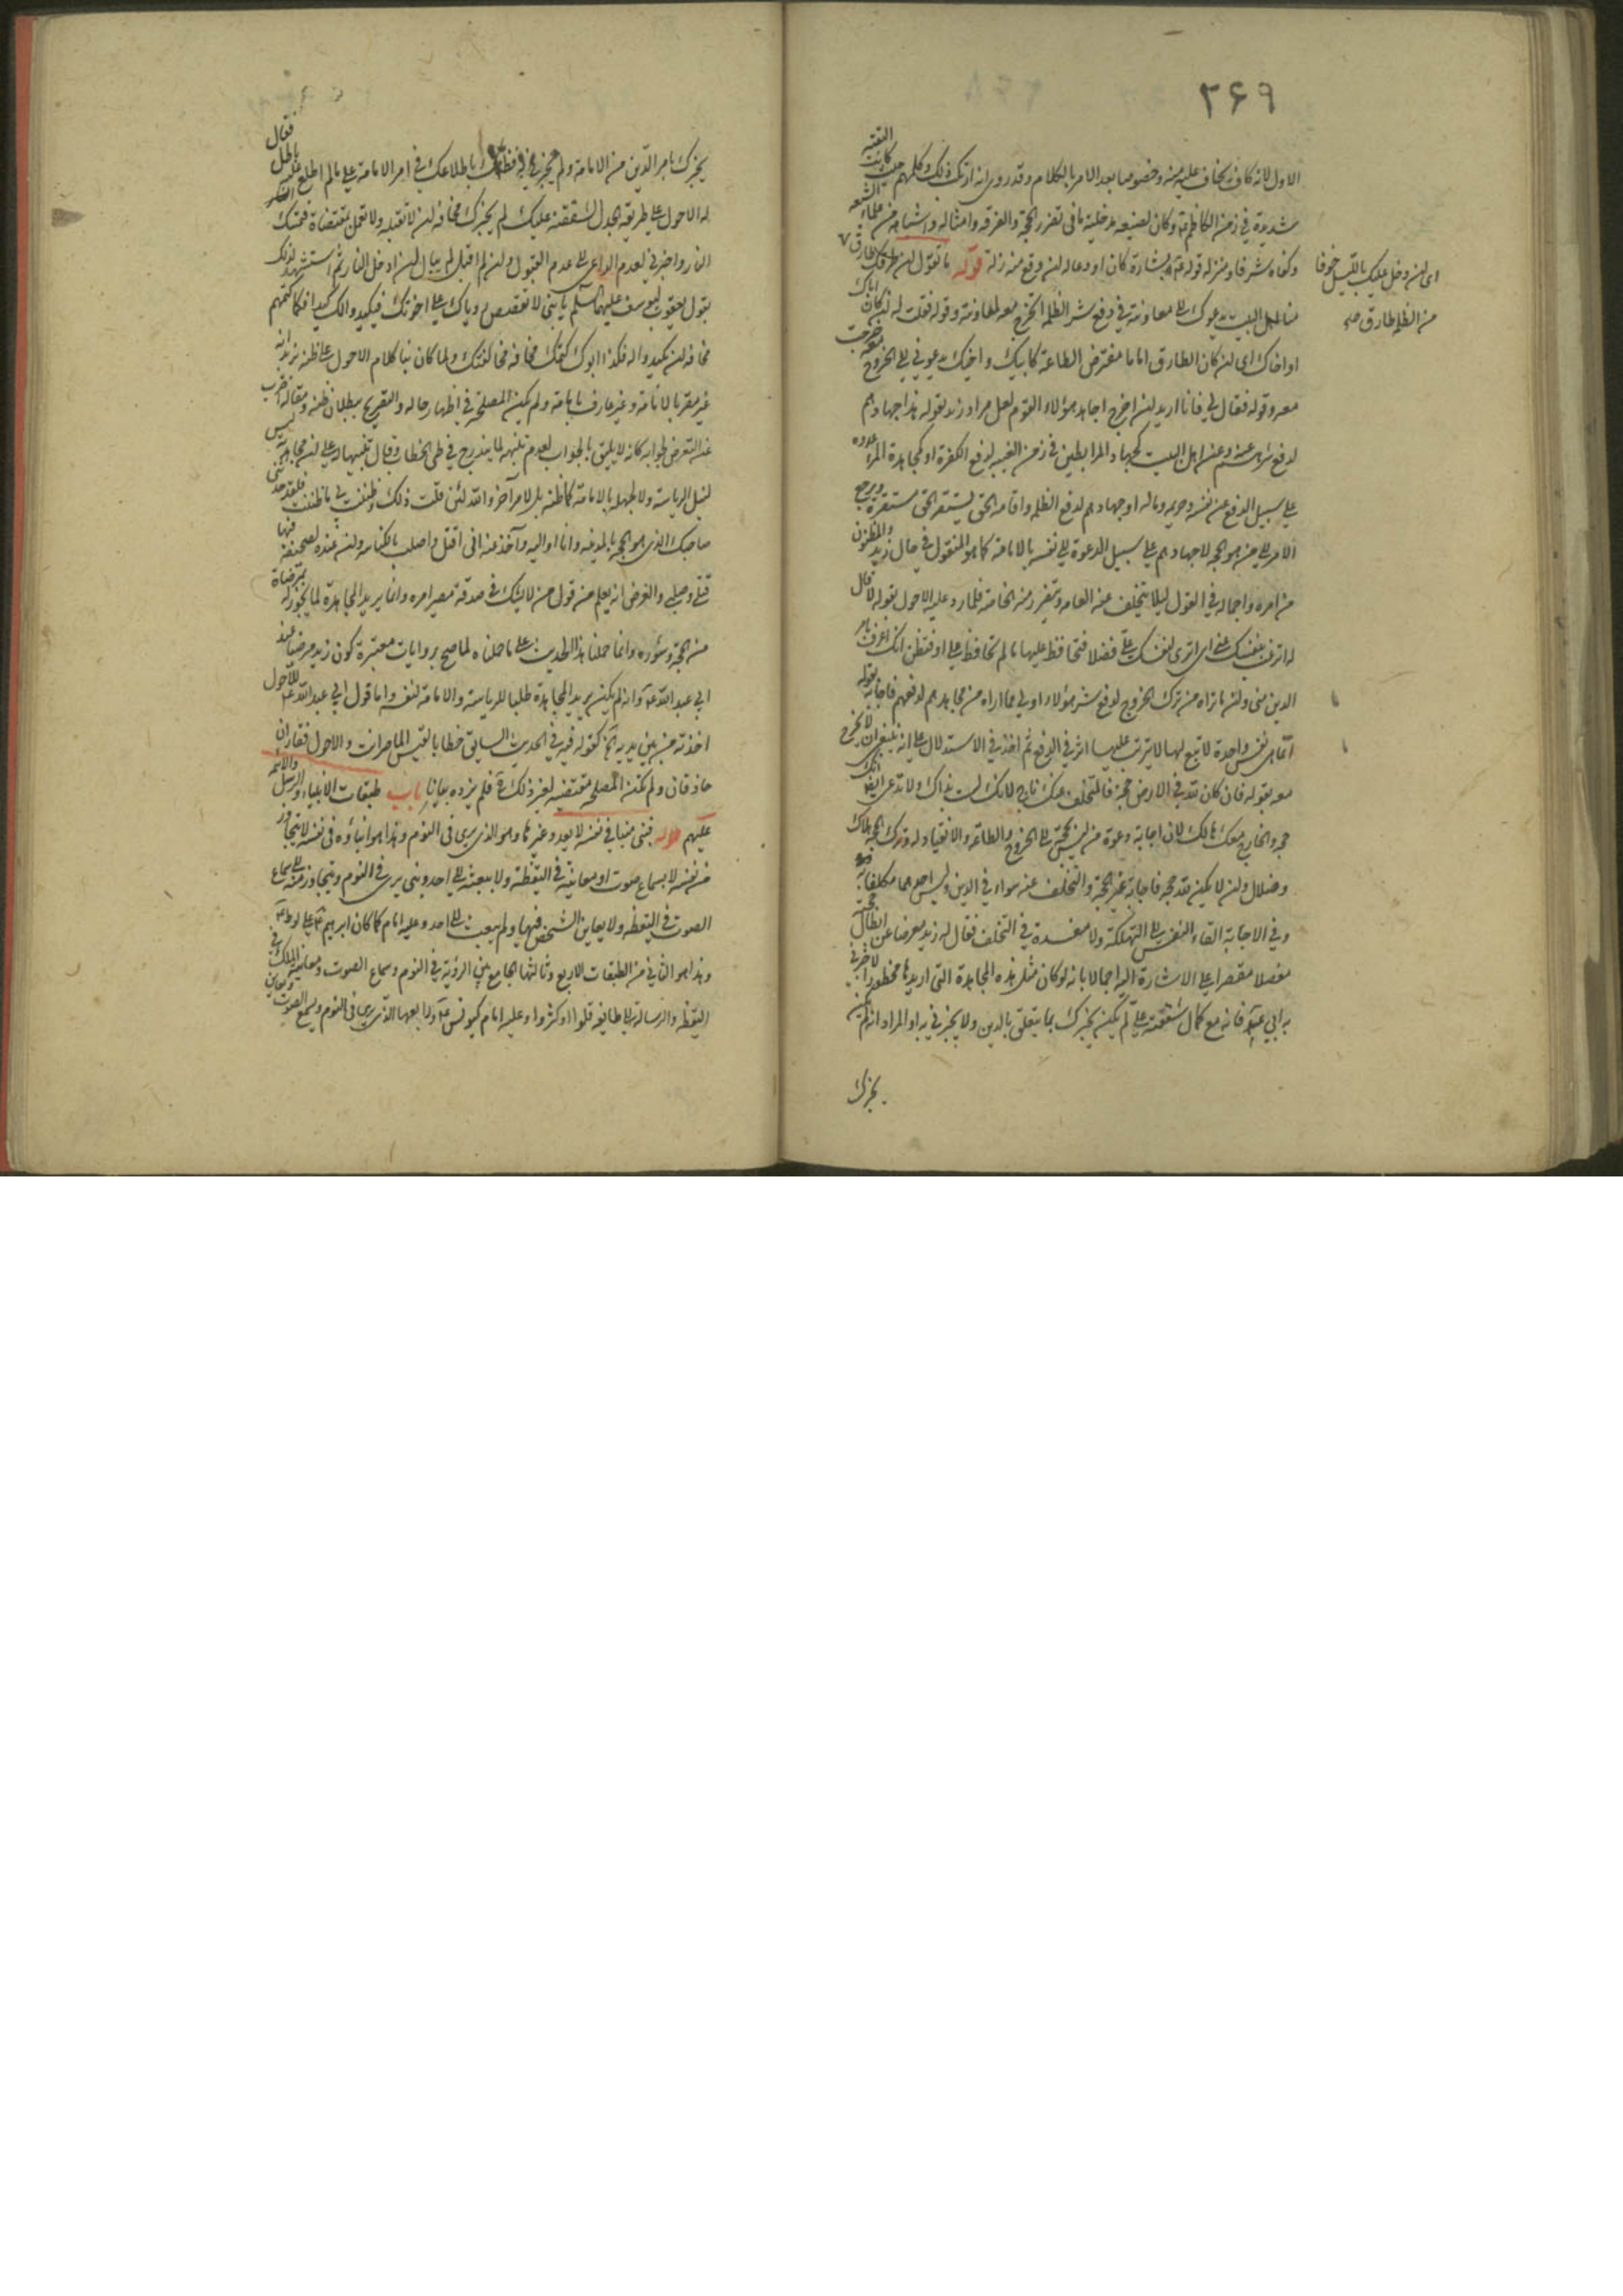 ٣۶٩
الاول لانه كان يخاف عليه منه وخصوصا بعد الامر بالكلام وقد روى انه ترك ذلك وكلهم حيث كانت التقية
شديدة في زمن الكاظم ع وكان لصنيعه مدخلية ما في تفرد الحجة والفرقه وامثاله واشباهه من علماء الشيعه
وكفاه شرفا ومنزله قوله ع بشارة كان او دعا له لن وقع منه زلة قوله ما تقول لن طرقك طارق
منا اهل البيت يدعوك الى معاونته في دفع شر الظلمه اتخرج معه لمعاونته وقوله فقلت له لن كان اباك
او اخاك اى لن كان الطارق اماما مفترض الطاعة كابيك واخيك يدعوني الى الخروج خرجت
معه وقوله فقال لي فانا اريد لن اخرج اجاهد هؤلاء القوم لعل مراد زيد بقوله هذا جهادهم
لدفع شرهم عنه وعن اهل البيت كجهاد المرابطين في زمن الغيبه لدفع الكفرة او كمجاهدة المرء عدوه
على سبيل الدفع عن نفسه وحريمه وماله او جهادهم لدفع الظلمه واقامه الحق ليستقر الحق مستقره ويرجع
الامر الى من هو الحجه لا جهادهم على سبيل الدعوة الى نفسه بالامامة كما هو المنقول في حال زيد والمظنون
من امره واجماله في القول ليلا يتخلف عنه العامه ويتفرد منه الخاصة فلما رد عليه الاحول بقوله لا قال
له اترغب بنفسك عني اى اترى لنفسك على فضلا فتحافظ عليها ما لم تحافظ على او فتظن انك اعرف بامر
الدين منى ولن ما تراه من ترك الخروج لدفع شر هؤلاء اولى مما اراه من مجاهدتهم لدفعهم فاجابه بقوله
انما هى نفس واحدة لا تبع لها لا يترتب عليها اثر في الدفع ثم اخذ في الاستدلال على انه ينبغي ان لا يخرج
معه بقوله فان كان لله في الارض حجة فالمتخلف عنك ناج لانك لست بذاك ولا تدعى ايضا انك
حجه والخارج معك هالك لان اجابة دعوة من ليس بحجة الى الخروج والطاعة والانقياد له وترك الحجه هلاك
وضلال ولن لا يكن لله حجه فاجابة غير الحجة والتخلف عنه سواء في الدين وليس احدهما مكلفا به
وفي الاجابة القاء النفس الى التهلكة ولا مفسدة في التخلف فقال له زيد معرضا عن ابطال حجته
مفصلا مقتصرا على الاشارة اليه اجمالا بانه لو كان مثل هذه المجاهدة التى اريدها محظورا لاخبرني
به ابي ع فانه مع كمال شفقته على لم يكن يخبرك بما يتعلق بالدين ولا يخبرني به او المراد انه لم يكن
يخبرك
اى لن دخل عليك بالليل خوفا
من الظلمه طارق صح
يخبرك بامر الدين من الامامة ولم يخبرني باطلاعك في امر الامامة على ما لم اطلع عليه باطل فقال
له الاحول على طريقه الجدل لشفقته عليك لم يخبرك مخافه لن لا تقبله ولا تعمل بمقتضاه فتستحق
النار واخبرني لعدم الداعى الى عدم القبول ولن لم اقبل لم يبال لن ادخل النار ثم استشهد لذلك
بقول يعقوب ليوسف عليهما السلم يا بني لا تقصص رؤياك على اخوتك فيكيدوا لك كيدا فكما كتمهم
مخافه لن يكيدوا له فكذا ابوك كتمك مخافه مخالفتك ولما كان بنا كلام الاحول على ظنه بزيد انه
غير مقر بالامامة وغير عارف بامامة ولم تكن المصلحة في اظهار حاله والتصريح ببطلان ظنه ومقاله اضرب
عن التعرض لجوابه كانه لا يليق بالجواب لعدم تنبهه لما يندرج في طى الخطاب وقال تنبيها له على لن مجاهدته ليس
لنيل الرياسة ولا لجهله بالامامة كما ظنه بل لامر آخر والله لئن قلت ذلك وظننت بي ما ظننت فلقد حدثني
صاحبك الذى هو الحجه بالمدينه وانا اواليه وآخذ منه انى اقتل واصلب بالكناسه ولن عنده لصحيفة فيها
قتلى وصلبى والغرض انه يعلم من قول من لا يشك في صدقة مصير امره وانما يريد المجاهدة لما يجوز له بمرضاة
من الحجة ومشورة وانما حملنا هذا الحديث على ما حملناه لما صح بروايات معتبرة كون زيد مرضيا عند
ابي عبد الله ع وانه لم يكن يريد المجاهدة طلبا للرياسة والامامة لنفسه واما قول ابي عبد الله ع للاحول
اخذته من بين يديه الخ كقوله فيه في الحديث السابق خطابا لقيس الماصرانت والاحول قفازان
حاذقان ولم تكن المصلحه مقتضيه لغير ذلك فلم يزده بيانا باب طبقات الانبياء والرسل والائمه
عليهم قوله فنبى منبا في نفسه لا يعدو غيرها وهو الذى يرى في النوم وهذا هو انباؤه في نفسه لا يتجاوز
من نفسه لا بسماع صوت او معاينة في اليقظة ولا ببعثه الى احد ونبى يرى في النوم ويتجاوز منه الى سماع
الصوت في اليقظه ولا يعاين الشخص فيها ولم يبعث الى احد وعليه امام كما كان ابراهيم ع على لوط ع
وهذا هو الثاني من الطبقات الاربع وثالثها الجامع بين الرؤية في النوم وسماع الصوت ومعاينة الملك في
اليقظه والرسالة الى طايفه قلوا او كثروا وعليه امام كيونس ع ورابعها الذى يرى في النوم ويسمع الصوت ويعاين